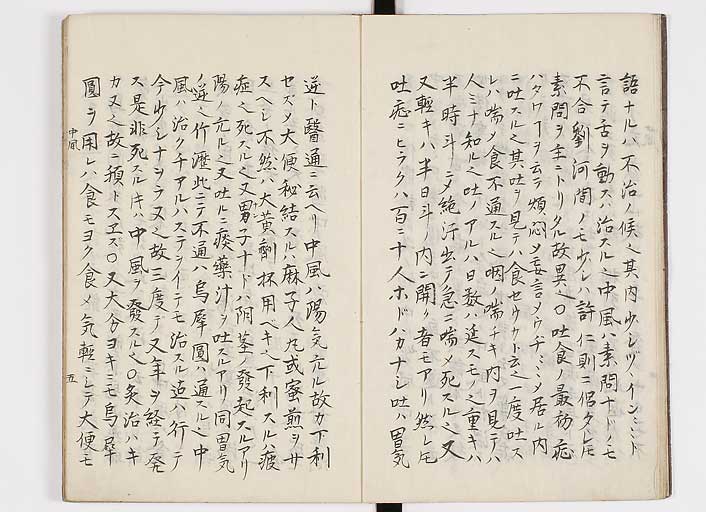 語ナルハ不治ノ候之其内少シヅヽイン〻〻ト
言テ舌ヲ動スハ治スル之中風ハ素問ナドノモ
不合劉河間ノモ少シハ許仁則ニ似タレ𪜈
素問ヲ主ニトリタル故異之〇吐食ノ最初症
ハタワ丁ヲ云テ煩悶メ妄言メウチ〻〻メ居ル内
ニ吐スル之其吐ヲ見テハ食セウト云之一度吐ス
レハ喘メ食不通スル之咽ノ喘チキ内ヲ見テハ
人ミナ知ル之吐ノアルハ日数ハ延スモノ之重キハ
半時斗ニテ絶汗出テ急ニ喘メ死スル之又
又軽キハ半日斗ノ内ニ開ク者モアリ然レ𪜈
吐症ニヒラクハ百ニ十人ホドハカナシ吐ハ胃気
逆ト醫通ニ云ヘリ中風ハ陽気亢ル故カ下利
セズメ大便秘結スルハ麻子人丸或蜜煎ヲサ
スヘシ不然ハ大黄劑抔用ベキ之下利スルハ疲
症之死スル之又男子ナドハ陰茎ノ發起スルアリ
陽ノ亢ル之又吐ルニ痰藥汁ヲ吐スルアリ同胃気
ノ逆之竹瀝此ニテ不通ハ烏犀圓ハ通スル之中
風ハ治クチアルハステヽイテモ治スル迠ハ行ニテ
今少シナヲラヌ之故ニ三度テ又年ヲ経テ発
ス是非死スル𪜈キハ中風ヲ發スル之〇灸治ハキ
カヌ之故ニ預トスヱズ〇又大分ヨキニモ烏犀
圓ヲ用レハ食モヨク食メ気軽ニシテ大便モ
中風
五